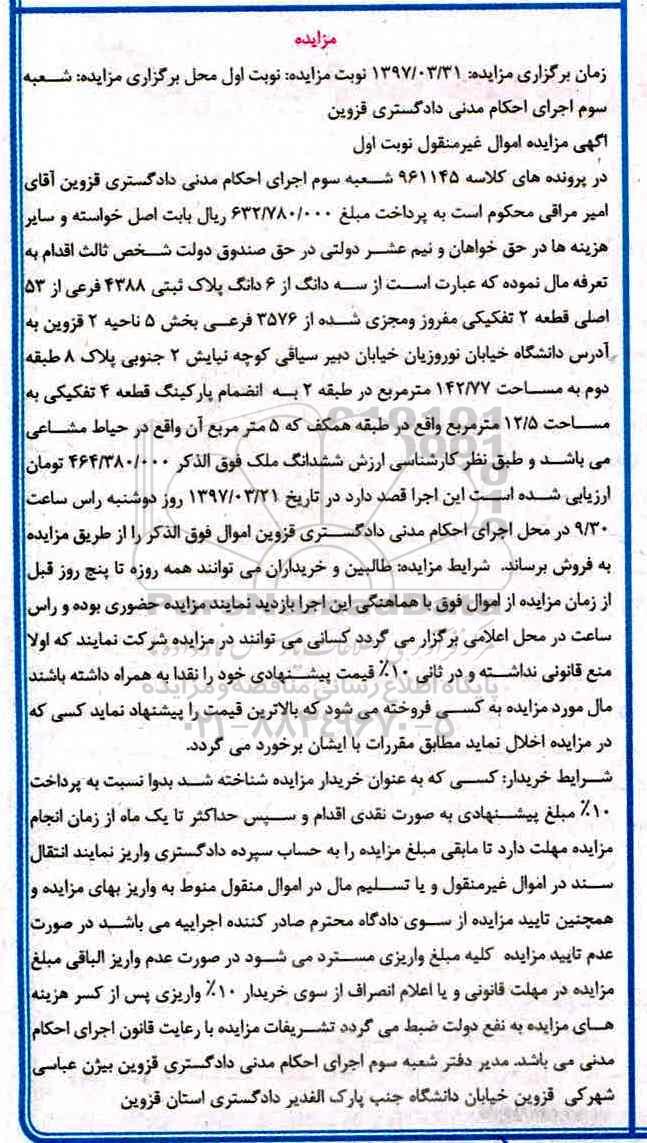 مزایده
زمان برگزاری مزایده: ۱۳۹۷/۰۳/۳۱ نوبت مزایده: نوبت اول محل برگزاری مزایده: شعبه
سوم اجرای احکام مدنی دادگستری قزوین
اگهی مزایده اموال غیرمنقول نوبت اول
در پرونده های کلاسه ۹۶۱۱۴۵ شعبه سوم اجرای احکام مدنی دادگستری قزوین آقای
امیر مراقی محکوم است به پرداخت مبلغ ۶۳۲/۷۸۰/۰۰۰ ریال بابت اصل خواسته و سایر
هزینه ها در حق خواهان و نیم عشر دولتی در حق صندوق دولت شخص ثالث اقدام به
تعرفه مال نموده که عبارت است از سه دانگ از ۶ دانگ پلاک ثبتی ۴۳۸۸ فرعی از ۵۳
اصلی قطعه ۲ تفکیکی مفروز ومجزی شده از ۳۵۷۶ فرعی بخش ۵ ناحیه ۲ قزوین به
آدرس دانشگاه خیابان نوروزیان خیابان دبیر سیاقی کوچه نیایش ۲ جنوبی پلاک ۸ طبقه
دوم به مساحت ۱۴۲/۷۷ مترمربع در طبقه ۲ به انضمام پارکینگ قطعه ۴ تفکیکی به
مساحت ۱۲/۵ مترمربع واقع در طبقه همکف که ۵ متر مربع آن واقع در حیاط مشاعی
می باشد و طبق نظر کارشناسی ارزش ششدانگ ملک فوق الذکر ۴۶۴/۳۸۰/۰۰۰ تومان
ارزیابی شده است این اجرا قصد دارد در تاریخ ۱۳۹۷/۰۳/۲۱ روز دوشنبه راس ساعت
۹/۳۰ در محل اجرای احکام مدنی دادگستری قزوین اموال فوق الذکر را از طریق مزایده
به فروش برساند. شرایط مزایده: طالبین و خریداران می توانند همه روزه تا پنج روز قبل
از زمان مزایده از اموال فوق با هماهنگی این اجرا بازدید نمایند مزایده حضوری بوده و راس
ساعت در محل اعلامی برگزار می گردد کسانی می توانند در مزایده شرکت نمایند که اولا
منع قانونی نداشته و در ثانی ۱۰٪ قیمت پیشنهادی خود را نقدا به همراه داشته باشند
مال مورد مزایده به کسی فروخته می شود که بالاترین قیمت را پیشنهاد نماید کسی که
در مزایده اخلال نماید مطابق مقررات با ایشان برخورد می گردد.
شرایط خریدار: کسی که به عنوان خریدار مزایده شناخته شد بدوا نسبت به پرداخت
۱۰٪ مبلغ پیشنهادی به صورت نقدی اقدام و سپس حداکثر تا یک ماه از زمان انجام
مزایده مهلت دارد تا مابقی مبلغ مزایده را به حساب سپرده دادگستری واریز نمایند انتقال
سند در اموال غیرمنقول و یا تسلیم مال در اموال منقول منوط به واریز بهای مزایده و
همچنین تایید مزایده از سوی دادگاه محترم صادر کننده اجراییه می باشد در صورت
عدم تایید مزایده کلیه مبلغ واریزی مسترد می شود در صورت عدم واریز الباقی مبلغ
مزایده در مهلت قانونی و یا اعلام انصراف از سوی خریدار ۱۰٪ واریزی پس از کسر هزینه
های مزایده به نفع دولت ضبط می گردد تشریفات مزایده با رعایت قانون اجرای احکام
مدنی می باشد. مدیر دفتر شعبه سوم اجرای احکام مدنی دادگستری قزوین بیژن عباسی
شهرکی قزوین خیابان دانشگاه جنب پارک الغدیر دادگستری استان قزوین
ParsNamadData
پایگاه اطلاع رسانی مناقصه و مزایده
۰۲۱-۸۸۳۴۹۶۷۰-۵